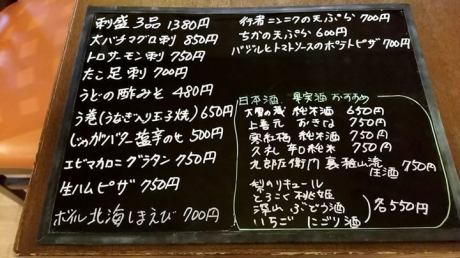 刺盛3品 1380円
大バチマグロ刺 850円
トロサーモン刺 750円
たこ足刺 700円
うどの酢みそ 480円
う巻(うなぎ入り玉子焼) 650円
じゃがバター塩辛のせ 500円
エビマカロニグラタン 750円
生ハムピザ 750円
ボイル北海しまえび 700円
行者ニンニクの天ぷら 700円
ちかの天ぷら 600円
バジルとトマトソースのポテトピザ 700円
日本酒、果実酒 おすすめ
大雪の蔵 純米酒 650円
上善元 おきな 750円
寒紅梅 純米酒 750円
久礼 辛口純米 750円
九郎左衛門 裏雅山流 750円
梨のリキュール
とろこく桃姫
深山ぶどう酒
いちごにごり酒
各550円